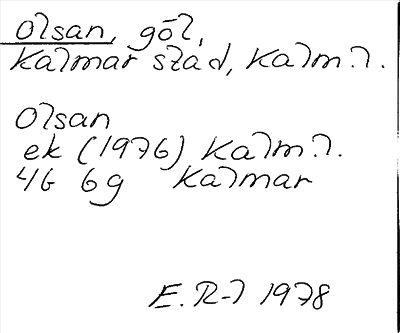 Olsan, göl,
Kalmar stad, Kalm. l.
Olsan
ek (1976) Kalm. l.
4G 6g Kalmar
E. R-l 1978